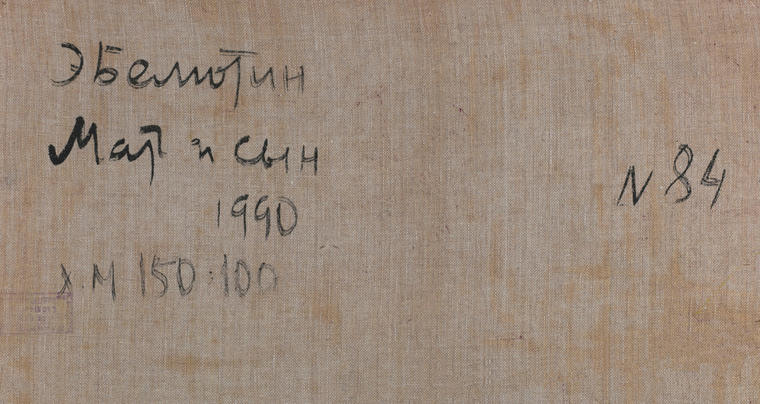 Э Белютин
Мат и сын
1990
х.м 150·100
N 84